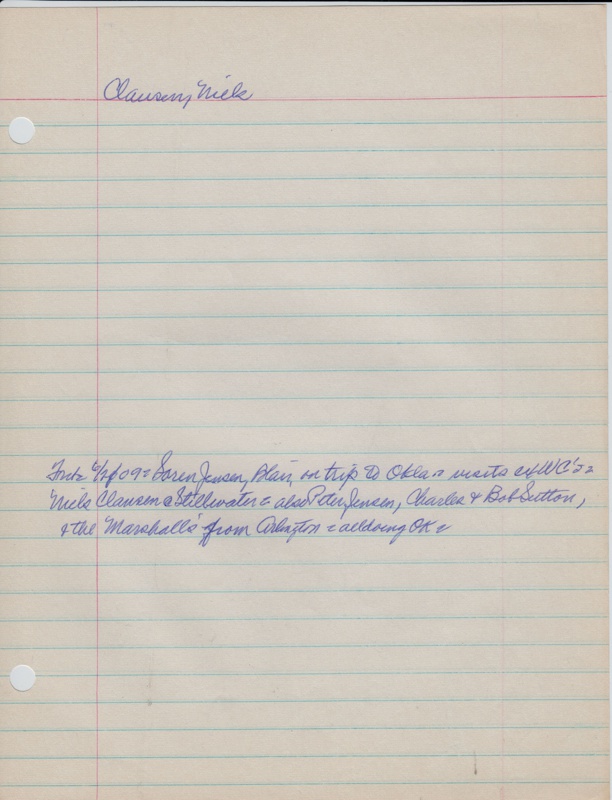 Clausen, Niels
4/2/09 = Soren Jensen, Blair, on trip to Okla = visits ex WC's =
Niels Clausen @ Stillwater = also Peter Jensen, Charles & Bob Sutton,
& the Marshalls from Arlington = all doing OK =